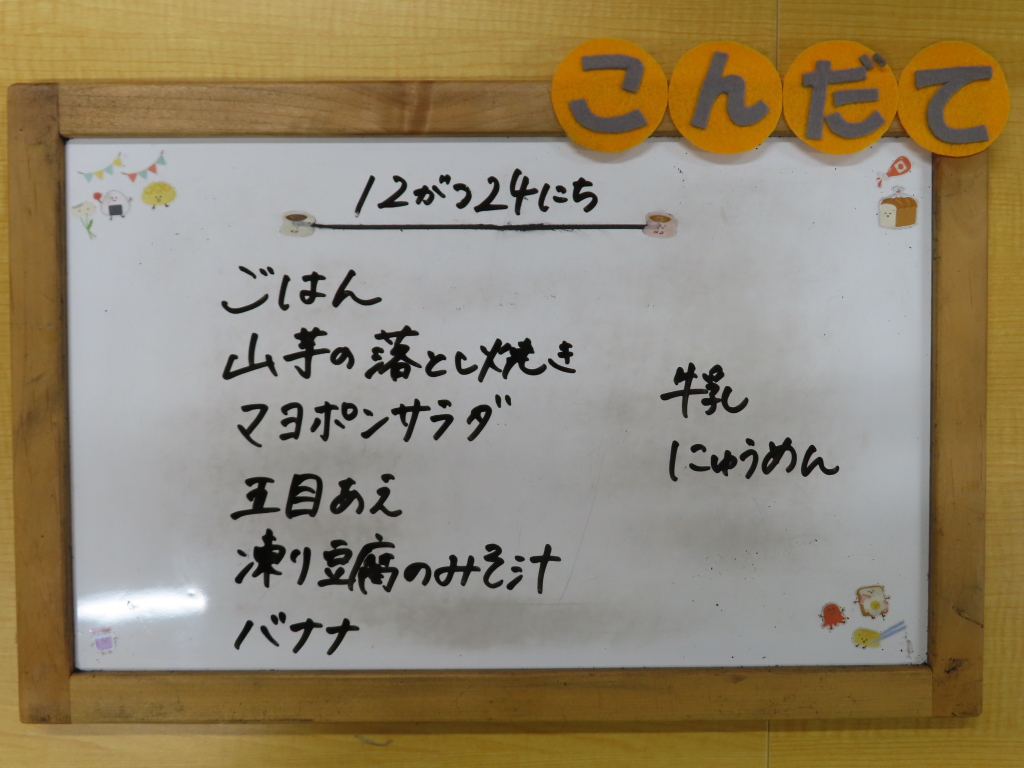 こんだて
12がつ24にち
ごはん
山芋の落とし焼き
マヨポンサラダ
五目あえ
凍り豆腐のみそ汁
バナナ
牛乳
にゅうめん